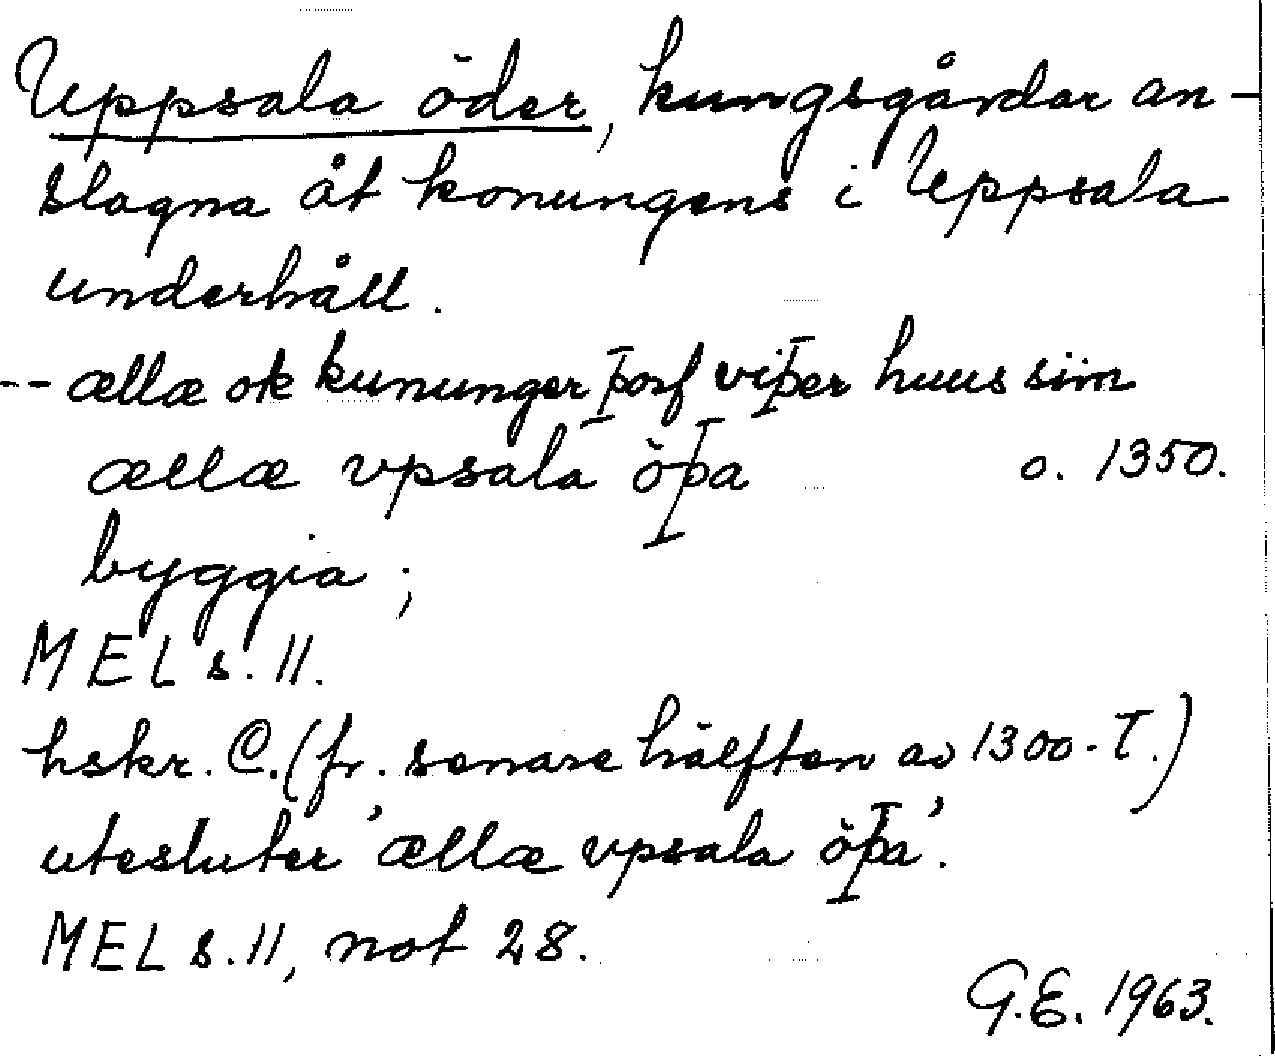 Uppsala öder, kungsgårdar an-
slagna åt konungens i Uppsala
underhåll.
-- ællæ ok kununger þorf viþer huus sim
ællæ vpsala öþa o. 1350.
byggia;
MEL s. 11.
hskr. C. (fr. senare hälften av 1300-T.)
utesluter 'ællæ vpsala öþa'.
MEL s. 11, not 28.
G.E. 1963.